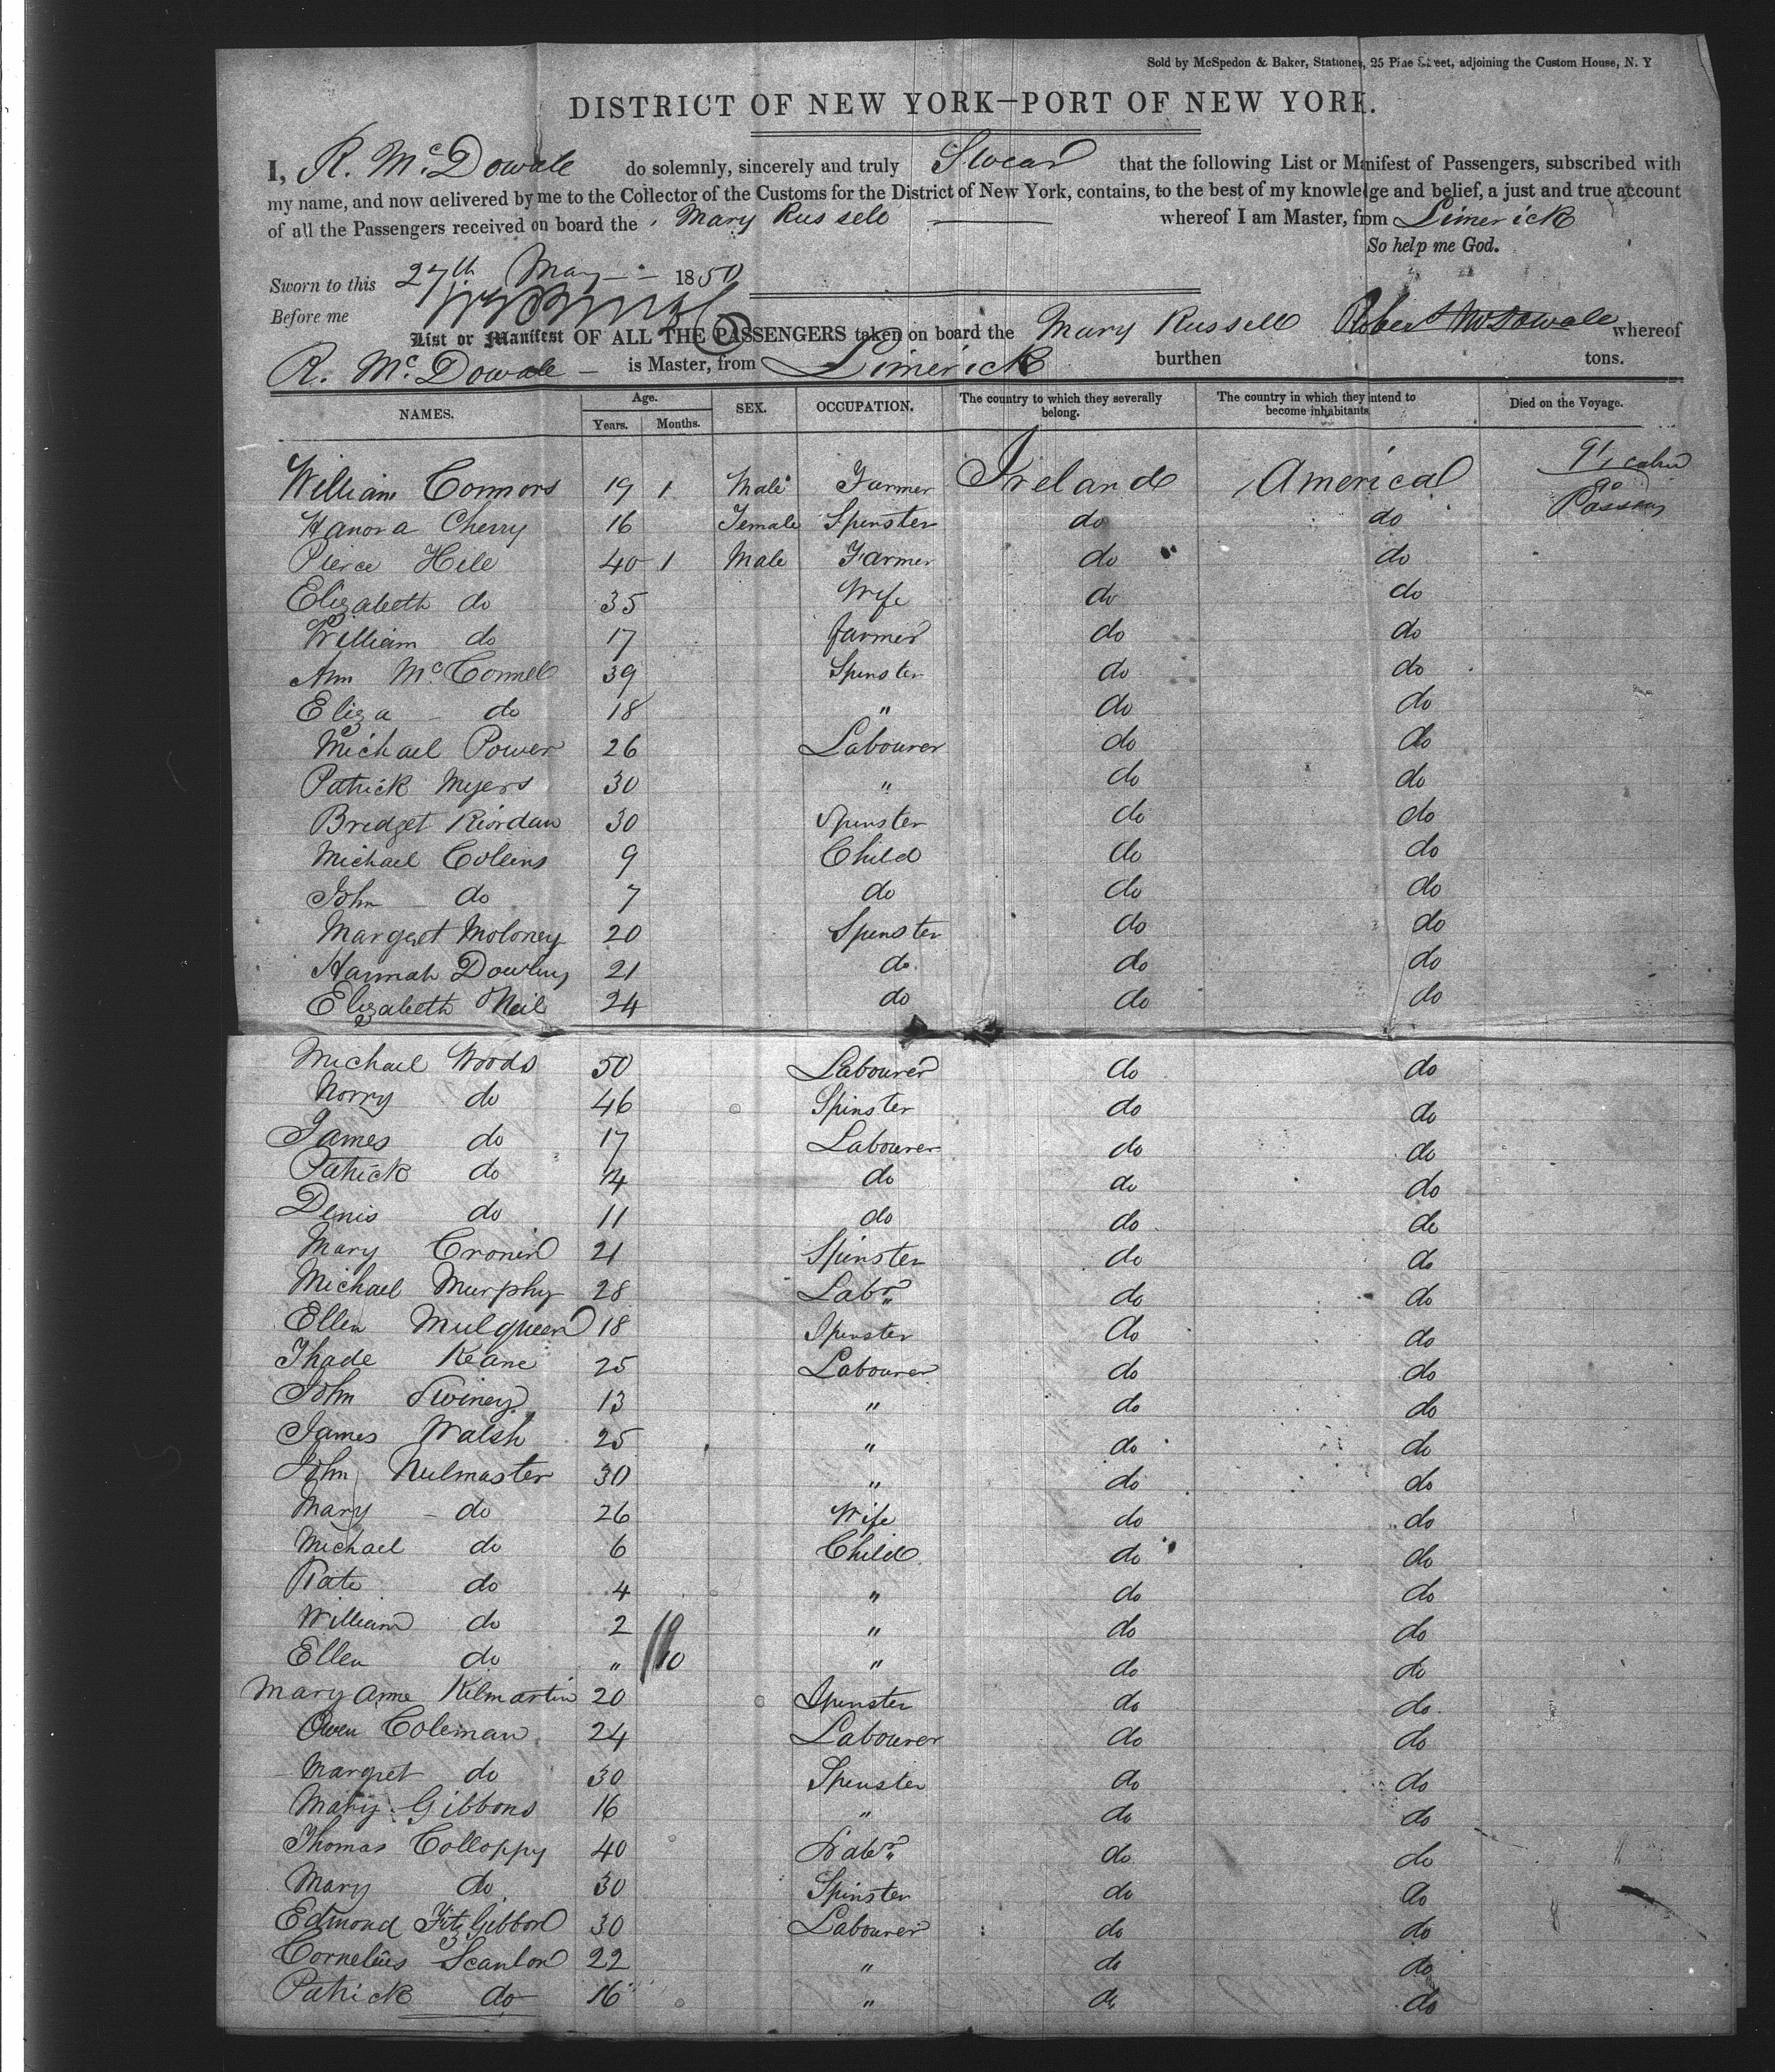 Sold by McSpedon & Baker, Stationers, 25 Pine Street, adjoining the Custom House, N. Y
DISTRICT OF NEW YORK—PORT OF NEW YORK.
I, R. McDowale do solemnly, sincerely and truly Swear that the following List or Manifest of Passengers, subscribed with
my name, and now delivered by me to the Collector of the Customs for the District of New York, contains, to the best of my knowledge and belief, a just and true account
of all the Passengers received on board the Mary Russell whereof I am Master, from Limerick
So help me God.
Sworn to this 27th May 1850
Before me
Robert McDowale
List or Manifest OF ALL THE PASSENGERS taken on board the Mary Russell whereof
R. McDowale is Master, from Limerick burthen tons.
NAMES. Age. Years. Months. SEX. OCCUPATION. The country to which they severally belong. The country in which they intend to become inhabitants. Died on the Voyage.
William Connors 19 1 Male Farmer Ireland America
Hanora Cherry 16 Female Spinster do do
Pierce Hill 40 1 Male Farmer do do
Elizabeth do 35 Wife do do
William do 17 Farmer do do
Ann McConnell 39 Spinster do do
Eliza do 18 " do do
Michael Power 26 Labourer do do
Patrick Myers 30 " do do
Bridget Riordan 30 Spinster do do
Michael Collins 9 Child do do
John do 7 do do do
Margret Moloney 20 Spinster do do
Hannah Dowling 21 do do do
Elizabeth Neil 24 do do do
Michael Woods 50 Labourer do do
Norry do 46 Spinster do do
James do 17 Labourer do do
Patrick do 14 do do do
Denis do 11 do do do
Mary Cronin 21 Spinster do do
Michael Murphy 28 Labr do do
Ellen Mulqueen 18 Spinster do do
Thade Keane 25 Labourer do do
John Swiney 13 " do do
James Walsh 25 " do do
John Nulmaster 30 " do do
Mary do 26 Wife do do
Michael do 6 Child do do
Kate do 4 " do do
William do 2 " do do
Ellen do " 10 " do do
Mary Anne Kilmartin 20 Spinster do do
Owen Coleman 24 Labourer do do
Margret do 30 Spinster do do
Mary Gibbons 16 " do do
Thomas Colloppy 40 Labr do do
Mary do 30 Spinster do do
Edmond FitzGibbon 30 Labourer do do
Cornelius Scanlon 22 " do do
Patrick do 16 " do do